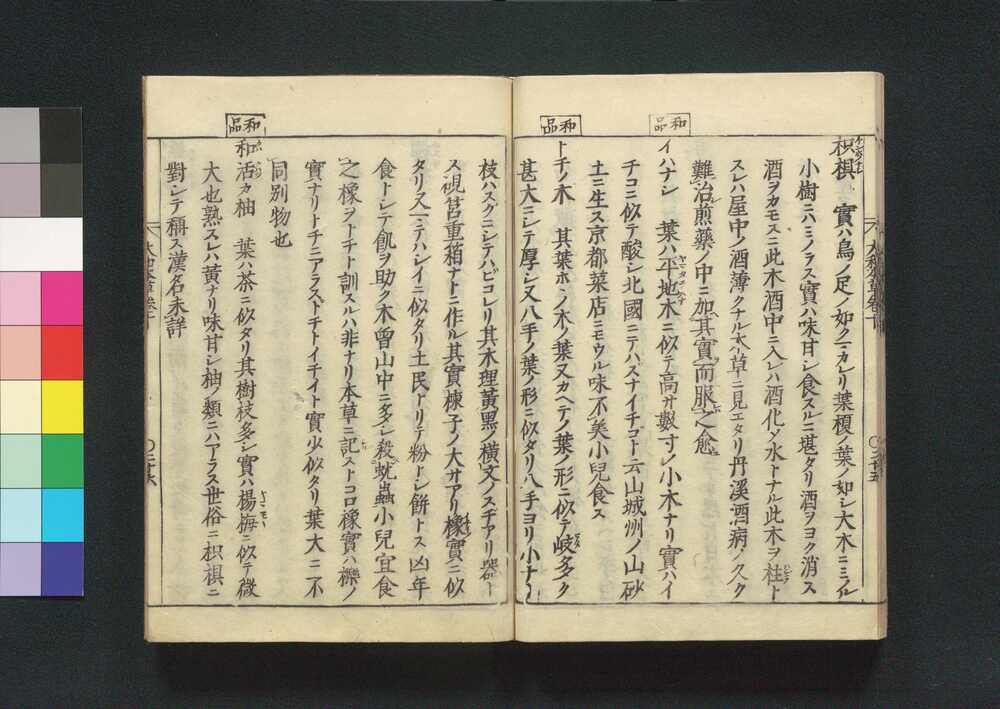 枳椇 實ハ鳥ノ足ノ如クマカレリ葉榎ノ葉ノ如シ大木ニミノル
小樹ニハミノラス實ハ味甘シ食スルニ堪タリ酒ヲヨク消ス
酒ヲカモスニ此木酒中ニ入レハ酒化シテ水トナル此木ヲ柱ト
スレハ屋中ノ酒薄クナル本草ニ見エタリ丹溪酒病ノ久ク
難治煎藥ノ中ニ加其實而服之愈
和品
イハナシ 葉ハ平地木ニ似テ高サ數寸ノ小木ナリ實ハイ
チコニ似テ酸シ北國ニテハスナイチゴト云山城州ノ山砂
土ニ生ス京都菜店ニモウル味不美小兒食ス
和品
トチノ木 其葉ホヽノ木ノ葉又カヘテノ葉ノ形ニ似テ岐多ク
甚大ニシテ厚シ又八手ノ葉ノ形ニ似タリ八手ヨリ小ナリ
大和本草卷之十
〇三十五
枝ハスグニシテハビコレリ其木理黃黑ノ橫文ノスヂアリ器ト
ス硯筥重箱ナトニ作ル其實楝子ノ大サアリ橡實ニ似
タリ又一ニテハシイニ似タリ土民トリテ粉トシ餅トス凶年
食トシテ飢ヲ助ク木曾山中ニ多シ殺蚘蟲小兒宜食
之橡ヲトチト訓スルハ非ナリ本草ニ記ストコロ橡實ハ櫟ノ
實ナリトチニアラズトチトイチイト實少似タリ葉大ニ不
同別物也
和品
和活カ柚 葉ハ茶ニ似タリ其樹枝多シ實ハ楊梅ニ似テ微
大也熟スレハ黃ナリ味甘シ柚ノ類ニハアラス世俗ニ枳椇ニ
對シテ稱ス漢名未詳
大和本草卷之十
〇三十六